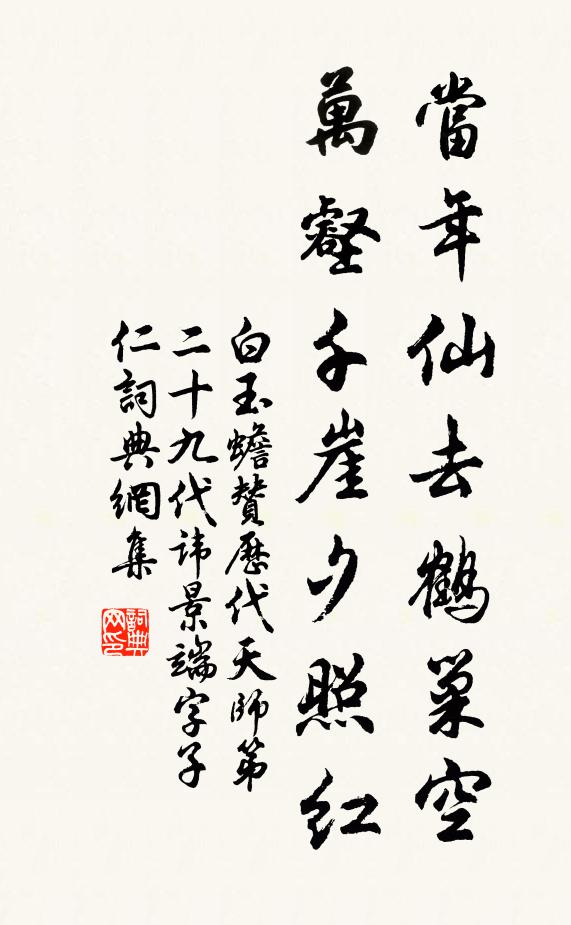 當年仙去鶴巢空
萬壑千崖夕照紅
白玉蟾贊歷代天師第
二十九代諱景端字子
仁詞典網集
詞典
网印